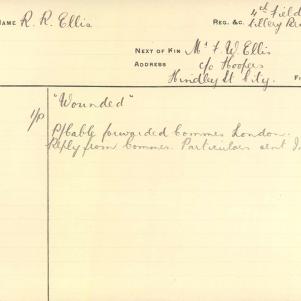 NAME R. R. Ellis
REG. &c. 4th Field
tillery Br
NEXT OF KIN Mr F. W. Ellis
ADDRESS c/o Hoopers
Hindley St City.
"Wounded"
Cable forwarded Commes London.
Reply from Commes. Particulars sent